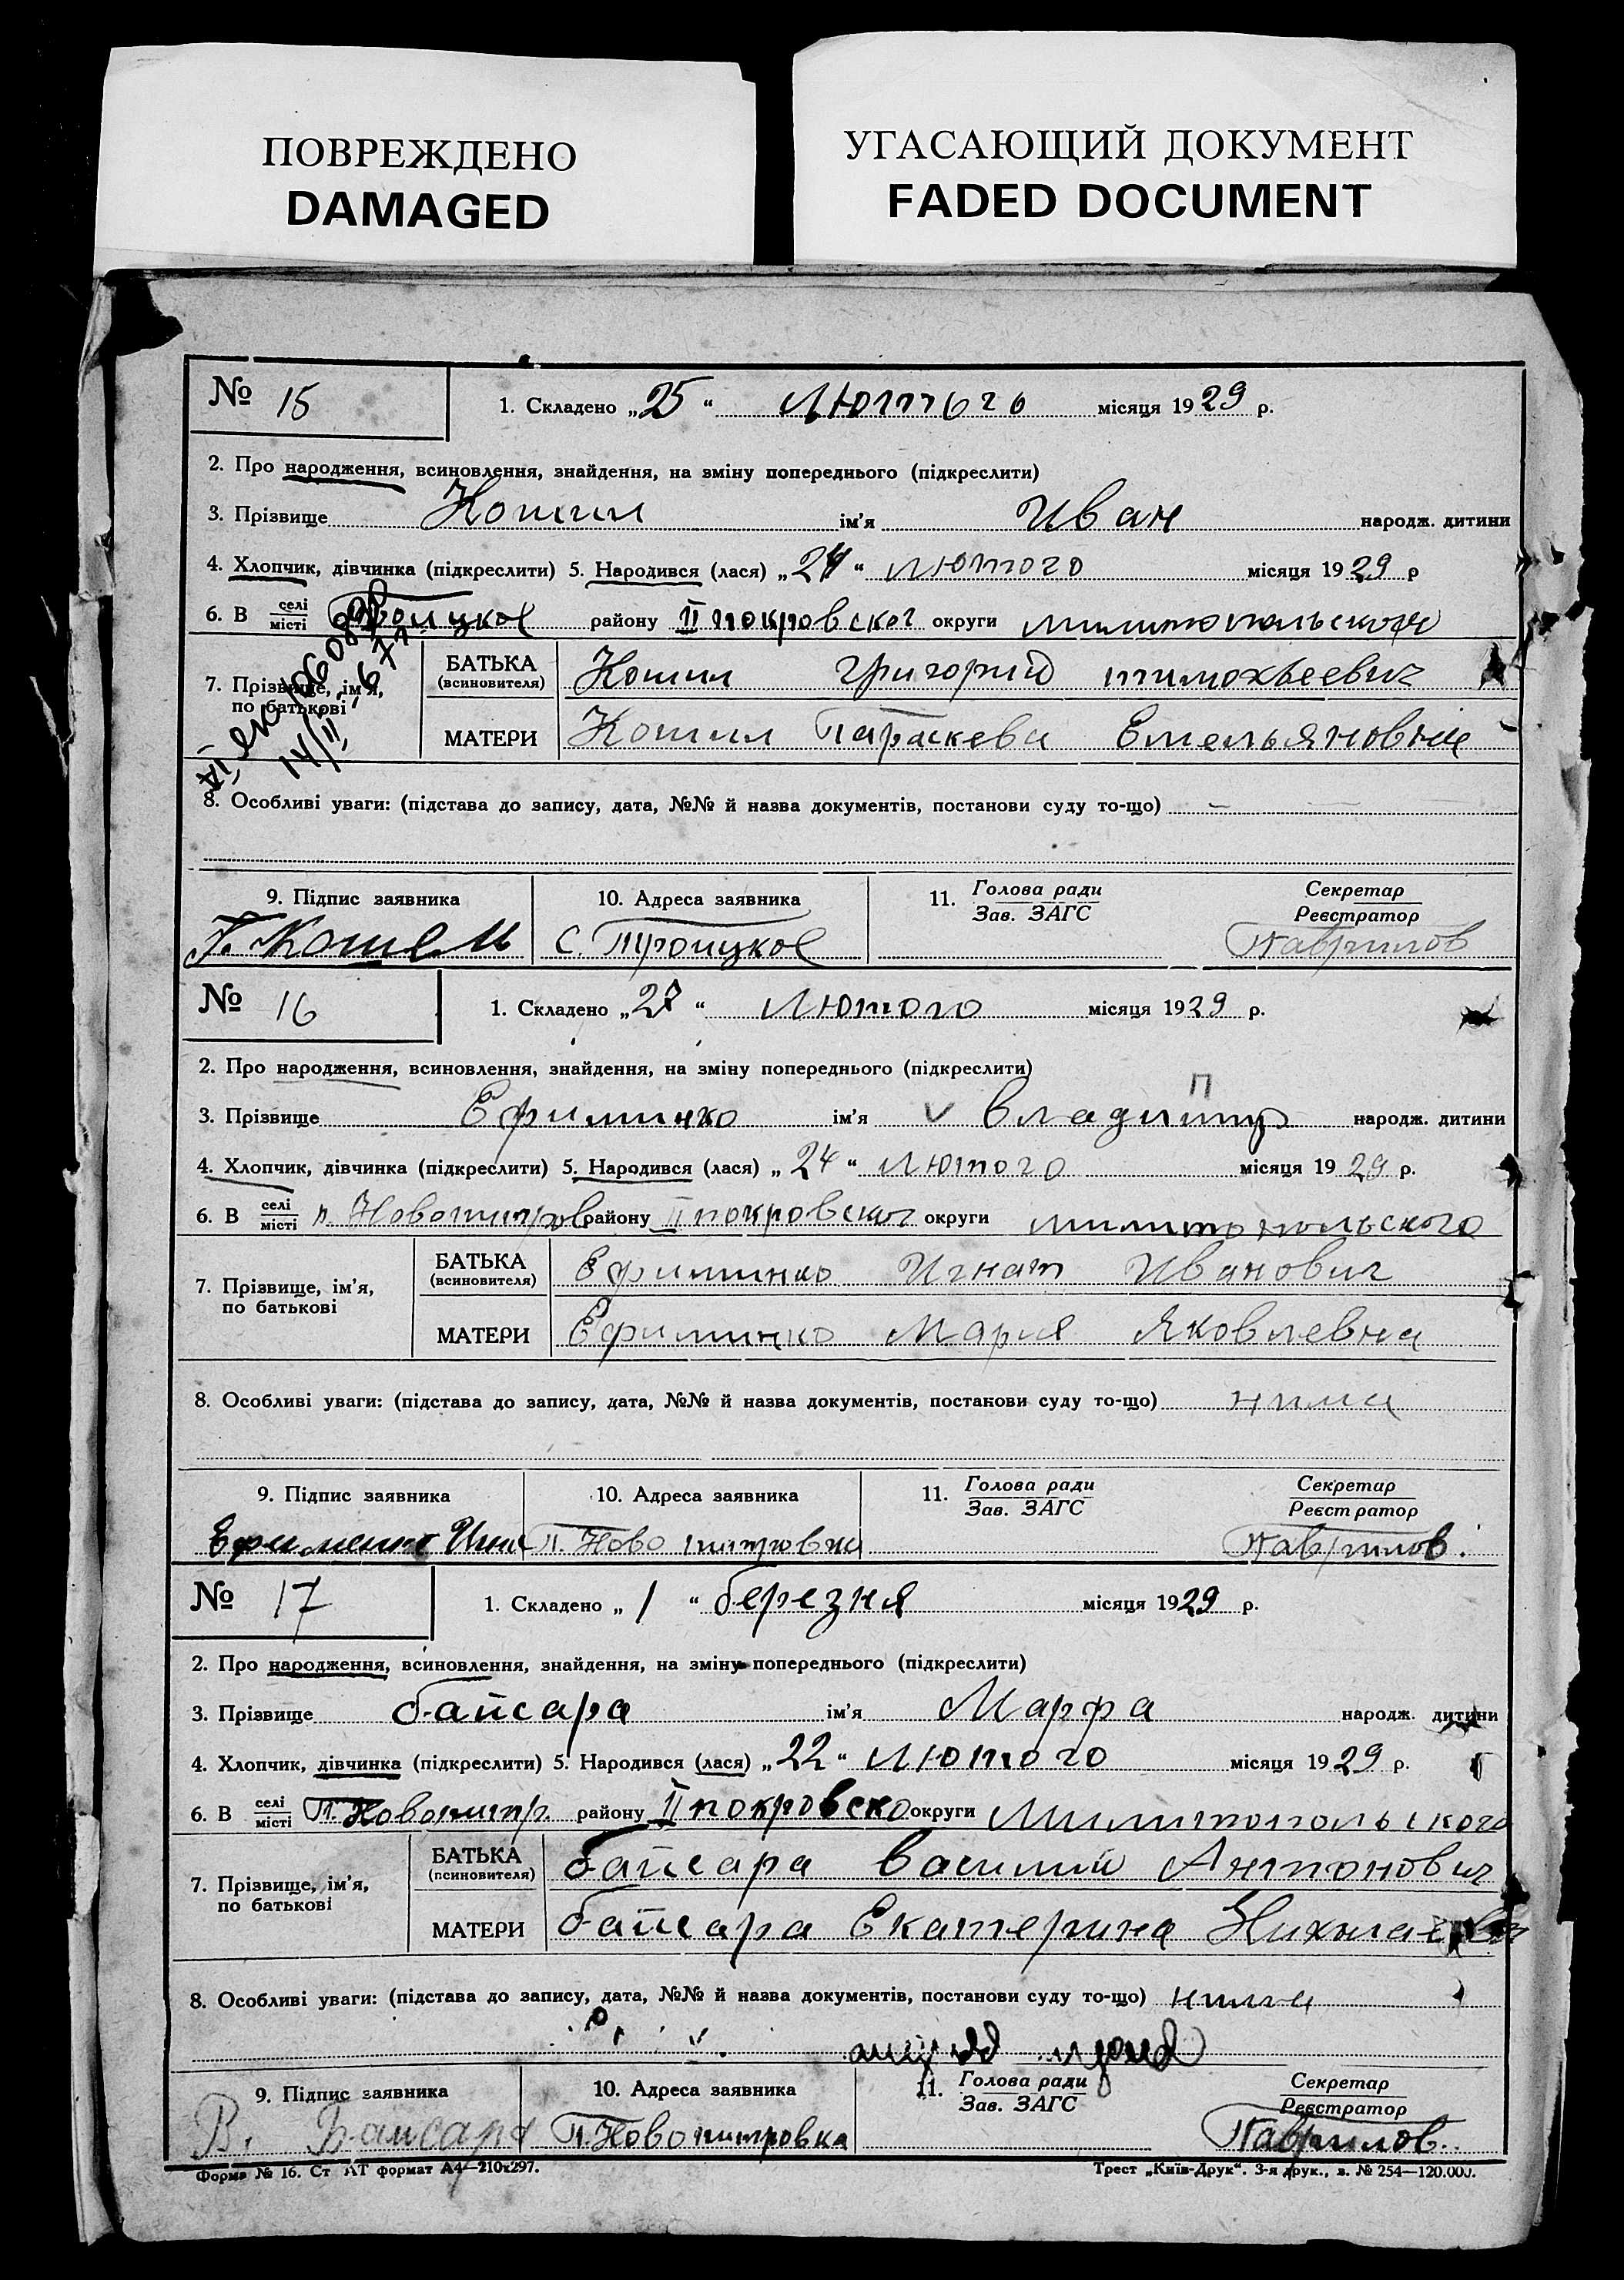 ПОВРЕЖДЕНО
DAMAGED
УГАСАЮЩИЙ ДОКУМЕНТ
FADED DOCUMENT
№ 15 1. Складено „25“ Лютого місяця 1929 р.
2. Про народження, всиновлення, знайдення, на зміну попереднього (підкреслити)
3. Прізвище Кошил ім'я Иван народж. дитини
4. Хлопчик, дівчинка (підкреслити) 5. Народився (лася) „24“ Лютого місяця 1929 р
6. В селі місті Троицкое району II покровског округи милитопольского
7. Прізвище, ім'я, по батькові
БАТЬКА (всиновителя) Кошил Григорий тимохвеевич
МАТЕРИ Кошил Параскева Емельяновна
14/II
8. Особливі уваги: (підстава до запису, дата, №№ й назва документів, постанови суду то-що) —
9. Підпис заявника 10. Адреса заявника 11. Голова ради Зав. ЗАГС Секретар Реєстратор
Г. Кошель С. Троицкое Гаврилов
№ 16 1. Складено „27“ Лютого місяця 1929 р.
2. Про народження, всиновлення, знайдення, на зміну попереднього (підкреслити)
П
3. Прізвище Ефиминко ім'я Владимир народж. дитини
4. Хлопчик, дівчинка (підкреслити) 5. Народився (лася) „24“ Лютого місяця 1929 р.
6. В селі місті п. Новопитров району II покровског округи милитопольского
7. Прізвище, ім'я, по батькові
БАТЬКА (всиновителя) Ефиминко Игнат Иванович
МАТЕРИ Ефиминко Мария Яковлевна
8. Особливі уваги: (підстава до запису, дата, №№ й назва документів, постанови суду то-що) нима
9. Підпис заявника 10. Адреса заявника 11. Голова ради Зав. ЗАГС Секретар Реєстратор
Ефименко п. Ново питровка Гаврилов.
№ 17 1. Складено „1“ березня місяця 1929 р.
2. Про народження, всиновлення, знайдення, на зміну попереднього (підкреслити)
3. Прізвище байсара ім'я Марфа народж. дитини
4. Хлопчик, дівчинка (підкреслити) 5. Народився (лася) „22“ Лютого місяця 1929 р.
6. В селі місті П. Новопитр. району II покровско округи Милитопольского
7. Прізвище, ім'я, по батькові
БАТЬКА (всиновителя) байсара Василий Антонович
МАТЕРИ байсара Екатерина Николаевна
8. Особливі уваги: (підстава до запису, дата, №№ й назва документів, постанови суду то-що) нима
9. Підпис заявника 10. Адреса заявника 11. Голова ради Зав. ЗАГС Секретар Реєстратор
В. Байсара П. Новопитровка Гаврилов.
Форма № 16. Ст АТ формат А4—210x297. Трест „Київ-Друк“. 3-я друк., з. № 254—120.000.